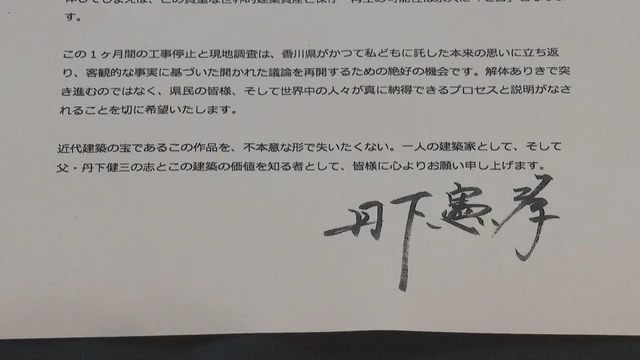 す。
この１ヶ月間の工事停止と現地調査は、香川県がかつて私どもに託した本来の思いに立ち返
り、客観的な事実に基づいた開かれた議論を再開するための絶好の機会です。解体ありきで突
き進むのではなく、県民の皆様、そして世界中の人々が真に納得できるプロセスと説明がなさ
れることを切に希望いたします。
近代建築の宝であるこの作品を、不本意な形で失いたくない。一人の建築家として、そして
父・丹下健三の志とこの建築の価値を知る者として、皆様に心よりお願い申し上げます。
丹下憲孝